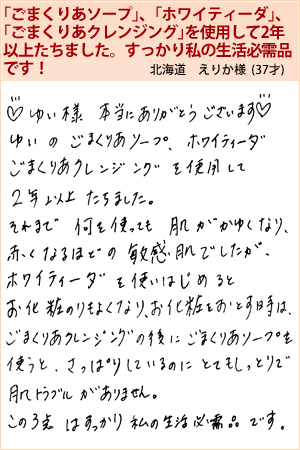 「ごまくりあソープ」、「ホワイティーダ」、
「ごまくりあクレンジング」を使用して2年
以上たちました。すっかり私の生活必需品
です！
北海道　えりか様（37才）
♡ゆい様 本当にありがとうございます♡
ゆいの ごまくりあソープ、ホワイティーダ
ごまくりあクレンジング を使用して
2年以上 たちました。
それまで 何を使っても 肌がかゆくなり、
赤くなるほどの 敏感肌でしたが、
ホワイティーダ を使いはじめると
お化粧のりもよくなり、お化粧をおとす時は、
ごまくりあクレンジングの後に ごまくりあソープを
使うと、さっぱりしているのに とてもしっとりで
肌トラブル がありません。
この3点 はすっかり 私の生活必需品 です。